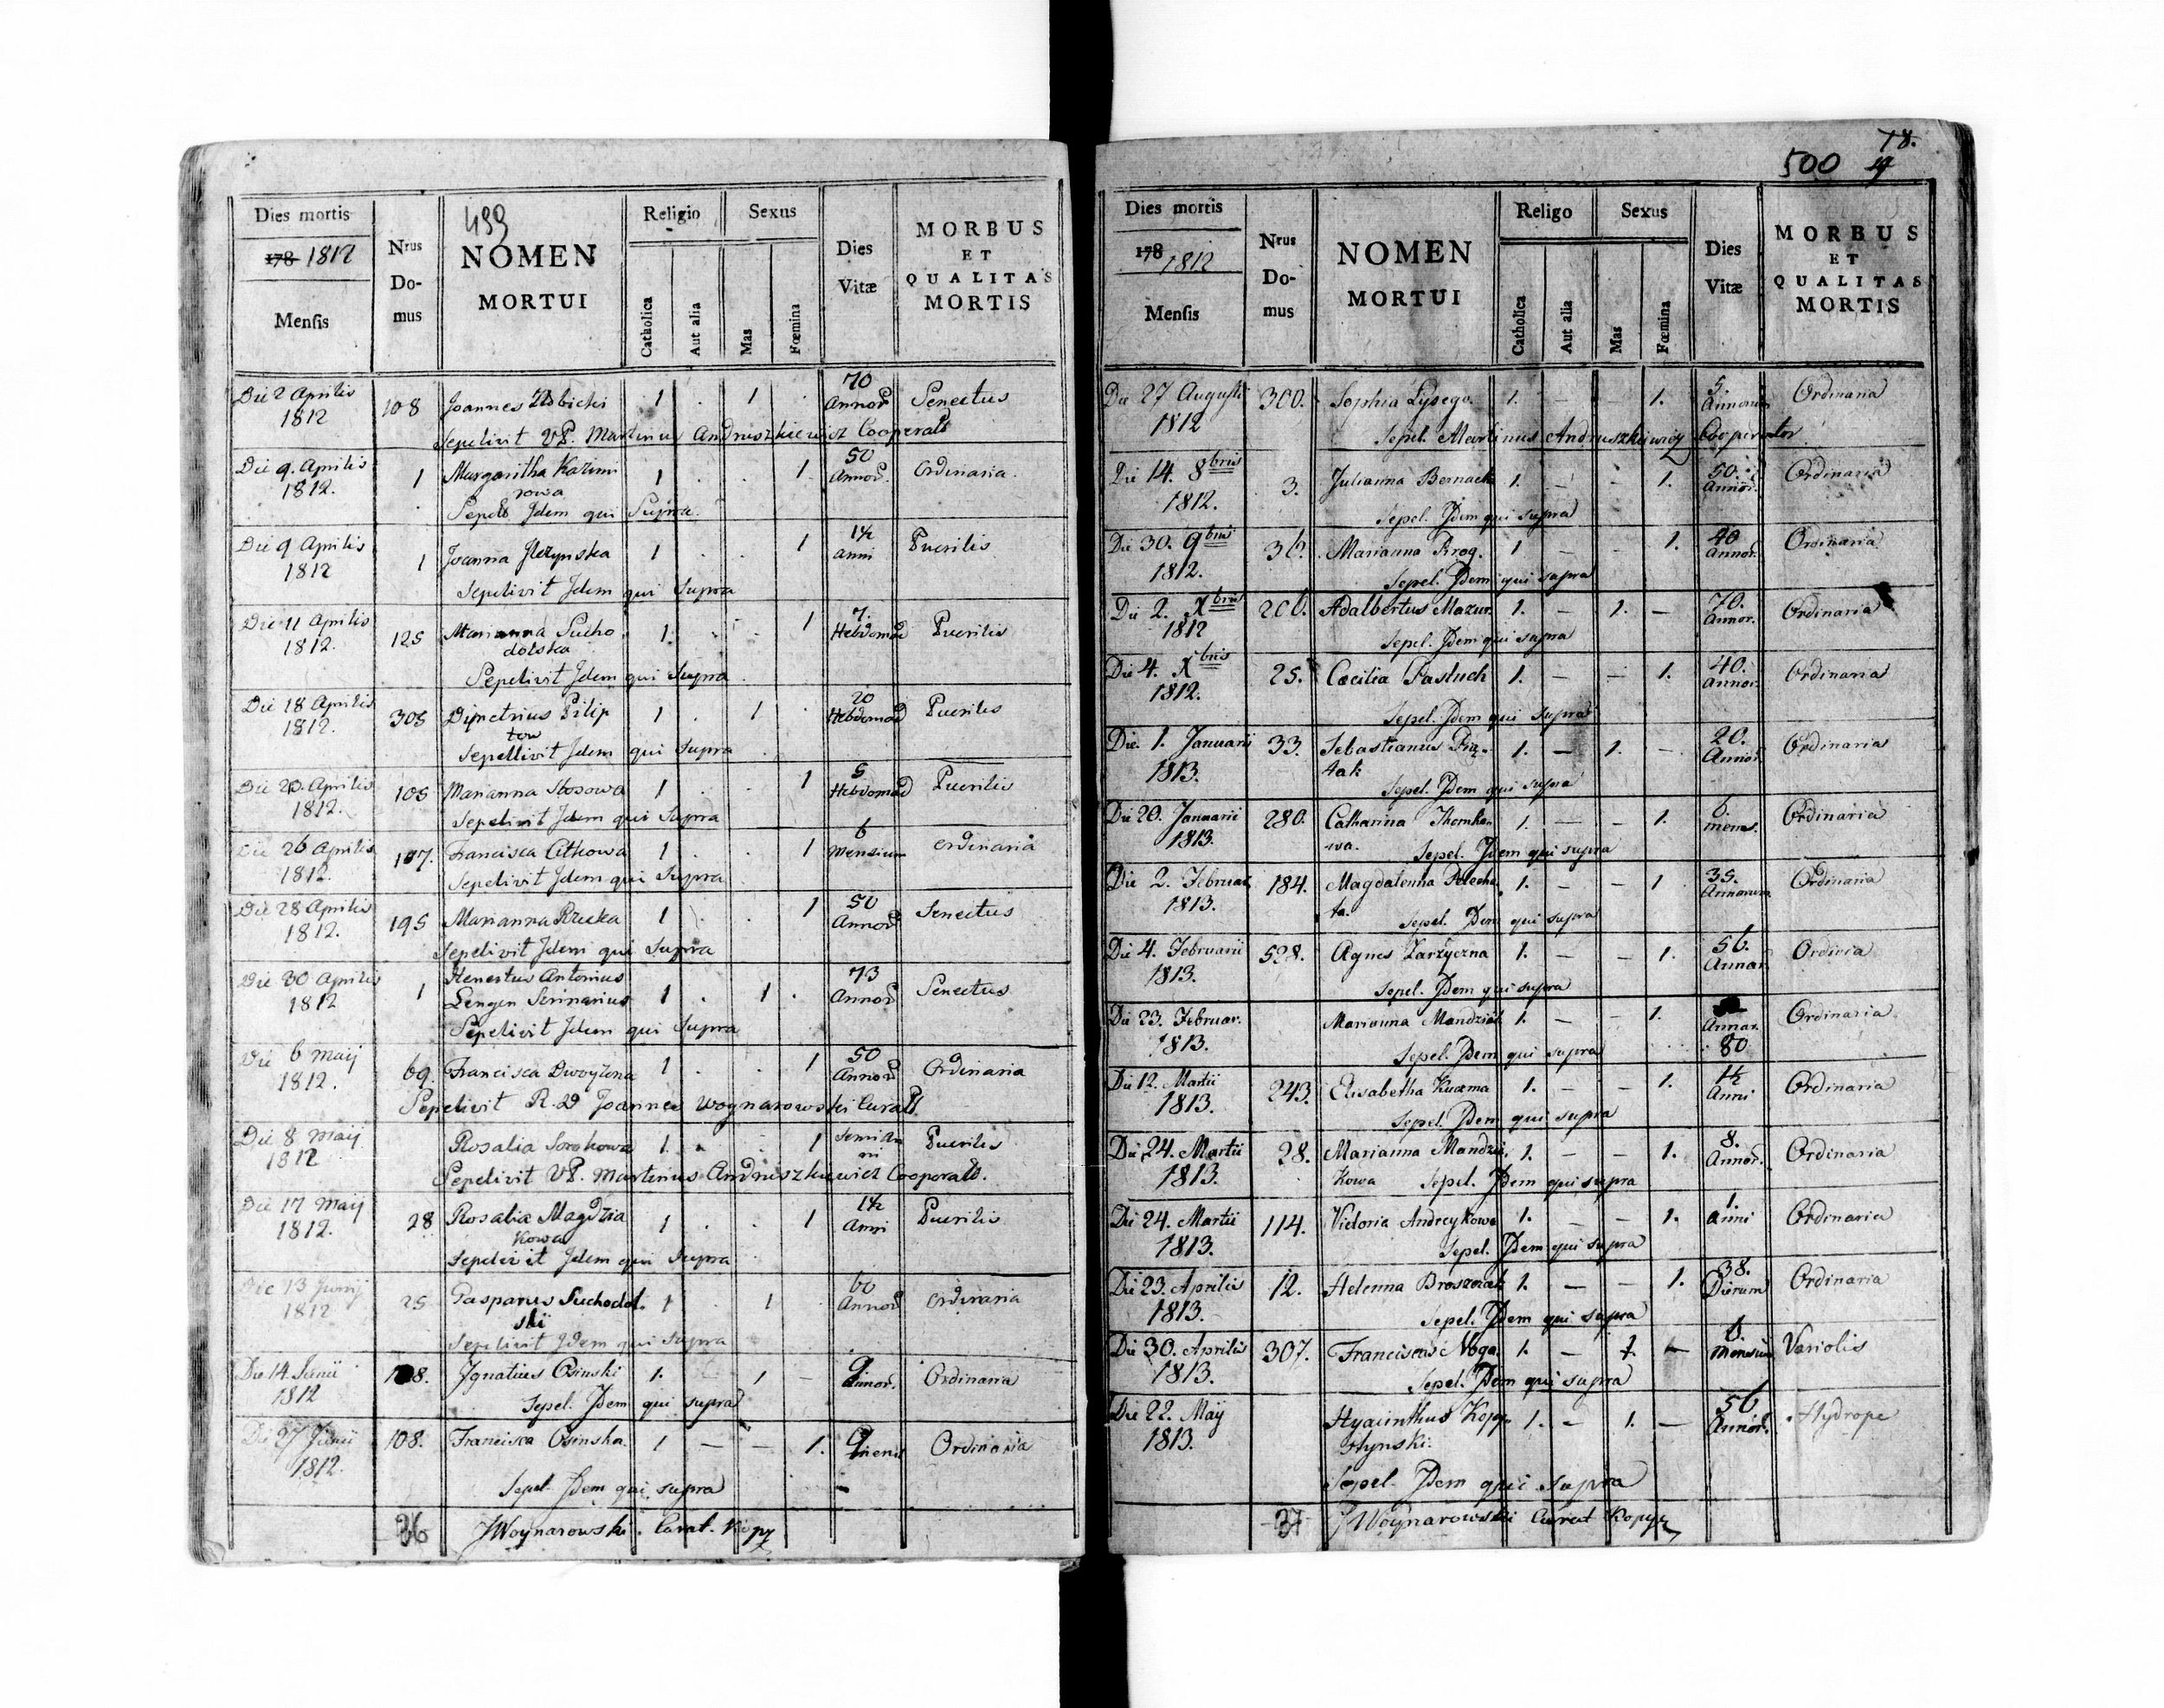 499
Dies mortis
178 1812
Mensis
Nrus Domus
NOMEN
MORTUI
Religio
Catholica
Aut alia
Sexus
Mas
Fœmina
Dies
Vitæ
MORBUS
ET
QUALITAS
MORTIS
Die 2 Aprilis 108 Joannes 1 . 1 . 70 Senectus
1812 Annor
Sepelivit VP. Martinus Andruszkiewicz Cooperat
Die 9. Aprilis 1 Margaritha Kazimi 1 . . 1 50 Ordinaria
1812. rowa Annor.
Sepel Jdem qui Supra.
Die 9 Aprilis 1 Joanna 1 . . 1 1½ Puerilis
1812 anni
Sepelivit Jdem qui Supra
Die 11 Aprilis 125 Marianna Sucho 1. . . 1 7. Puerilis
1812. dolska Hebdomad
Sepelivit Jdem qui Supra
Die 18 Aprilis 308 Dimetrius Pilip 1 . 1 . 20 Puerilis
1812. tow Hebdomad
Sepellivit Jdem qui Supra
Die 20. Aprilis 105 Marianna 1 . . 1 5 Puerilis
1812. Hebdomad
Sepelivit Jdem qui Supra
Die 26 Aprilis 107. Francisca 1 . . 1 6 Ordinaria
1812. Mensium
Sepelivit Jdem qui Supra
Die 28 Aprilis 195 Marianna 1 . . 1 50 Senectus
1812. Annor
Sepelivit Jdem qui Supra
Die 30 Aprilis 1 Antonius 73 Senectus
1812 Lengen 1 . 1 . Annor
Sepelivit Jdem qui Supra
Die 6 Maij 69. Francisca 1 . . 1 50 Ordinaria
1812. Annor
Sepelivit R. D Joannes Woynarowski Curat.
Die 8 Maij Rosalia Sorokowa 1. . . 1 Semi An Puerilis
1812 ni
Sepelivit VP. Martinus Andruszkiewicz Cooperat.
Die 17 Maij 28 Rosalia Magdzia 1 . . 1 1½ Puerilis
1812. kowa Anni
Sepelivit Jdem qui Supra
Die 13 Junij 25 Gasparus Suchodol 1 . 1 . 60 Ordinaria
1812 skii Annor
Sepelivit Jdem qui Supra
Die 14. Junii 108. Jgnatius Osinski 1. 1 — 9 Ordinaria
1812 Annor.
Sepel. Jdem qui supra
Die 27 Junii 108. Francisca Osinska. 1 — — 1. 9 Ordinaria
1812. mens
Sepel. Jdem qui supra
36 JWoynarowski. Curat. Kopy
78.
500
Dies mortis
178 1812
Mensis
Nrus Domus
NOMEN
MORTUI
Religo
Catholica
Aut alia
Sexus
Mas
Fœmina
Dies
Vitæ
MORBUS
ET
QUALITAS
MORTIS
Die 27 Augusti 300. Sophia Lysego. 1. — 1. 5. Ordinaria
1812 Annorum
Sepel. Martinus Andruszkiewicz Cooperator
Die 14. 8bris 3. Julianna Bernack 1. — — 1. 50. Ordinaria
1812. Annor.
Sepel. Jdem qui supra
Die 30. 9bris 36. Marianna Krog. 1 — — 1. 40 Ordinaria
1812. Annor.
Sepel. Jdem qui supra
Die 2. Xbris 206. Adalbertus Mazur. 1. — 1. — 70. Ordinaria
1812 Annor.
Sepel. Jdem qui supra
Die 4. Xbris 25. Cæcilia Pastuch 1. — — 1. 40. Ordinaria
1812. Annor.
Sepel. Jdem qui supra
Die 1. Januarii 33. Sebastianus 1. — 1. — 20. Ordinaria
1813. tak Annor.
Sepel. Jdem qui supra
Die 20. Januarii 280. Catharina Thomko 1. — — 1. 6. Ordinaria
1813. wa. mens.
Sepel. Jdem qui supra
Die 2. Februar. 184. Magdalenna 1. — — 1 35. Ordinaria
1813. ta. Annorum
Sepel. Jdem qui supra
Die 4. Februarii 528. Agnes Zarzyczna 1. — — 1. 56. Ordiria
1813. Annor.
Sepel. Jdem qui supra
Die 23. Februar. Marianna Mandziak 1. — — 1. Annor. Ordinaria
1813. 80
Sepel. Jdem qui supra
Die 12. Martii 243. Elisabetha Kuzma 1. — — 1. 1½ Ordinaria
1813. Anni
Sepel. Jdem qui supra
Die 24. Martii 28. Marianna Mandzia 1. — — 1. 8. Ordinaria
1813. kowa Annor.
Sepel. Jdem qui supra
Die 24. Martii 114. Victoria Andreykowa 1. — — 1. 1. Ordinaria
1813. anni
Sepel. Jdem qui supra
Die 23. Aprilis 12. Helenna 1. — — 1. 38. Ordinaria
1813. Dierum
Sepel. Jdem qui supra
Die 30. Aprilis 307. Noga. 1. — 1. — 6. Variolis
1813. Mensium
Sepel. Jdem qui supra
Die 22. Maÿ Hyacinthus Kopy 1. — 1. — 56 Hydrope
1813. stynski. Annor.
Sepel Jdem qui supra
37 JWoynarowski Curat Kopy